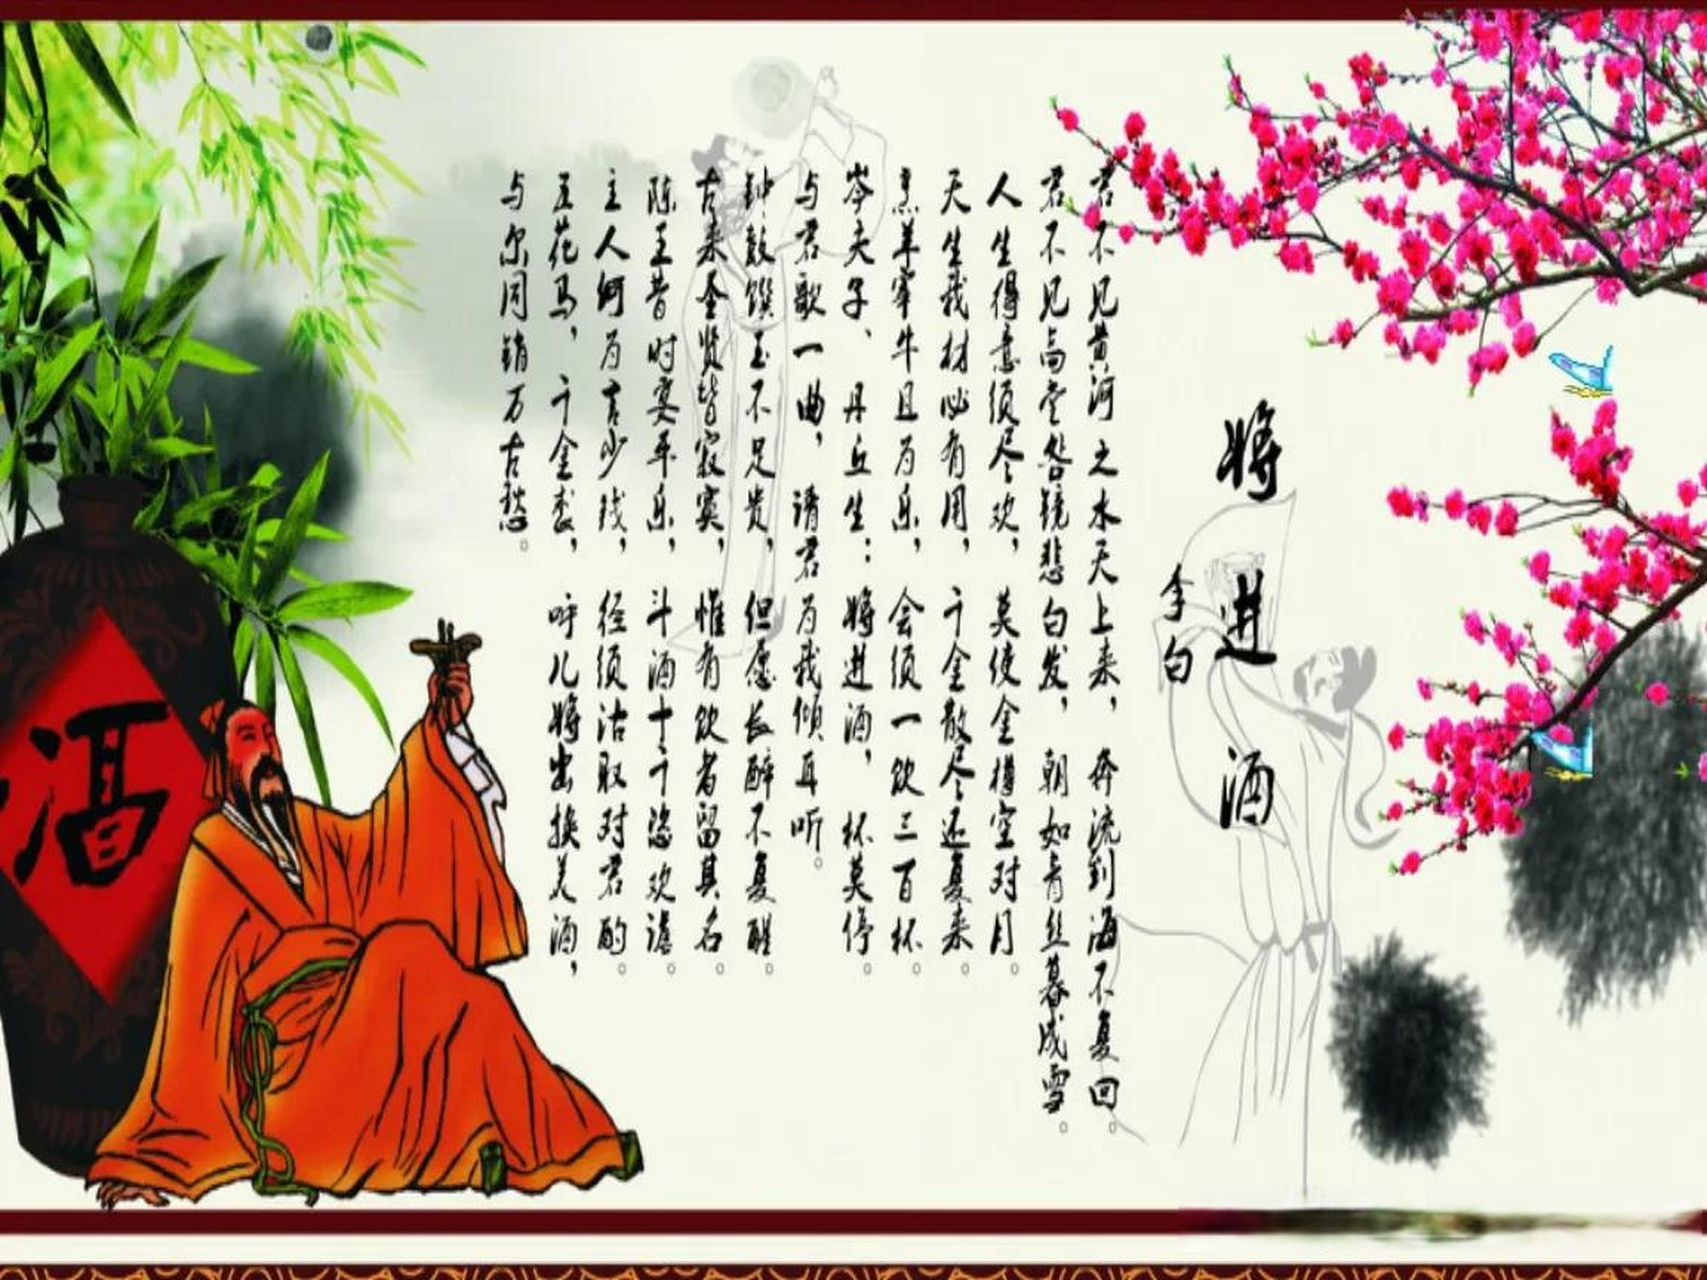 将进酒
李白
君不见黄河之水天上来，奔流到海不复回。
君不见高堂明镜悲白发，朝如青丝暮成雪。
人生得意须尽欢，莫使金樽空对月。
天生我材必有用，千金散尽还复来。
烹羊宰牛且为乐，会须一饮三百杯。
岑夫子、丹丘生：将进酒，杯莫停。
与君歌一曲，请君为我倾耳听。
钟鼓馔玉不足贵，但愿长醉不复醒。
古来圣贤皆寂寞，惟有饮者留其名。
陈王昔时宴平乐，斗酒十千恣欢谑。
主人何为言少钱，径须沽取对君酌。
五花马，千金裘，呼儿将出换美酒，
与尔同销万古愁。
酒